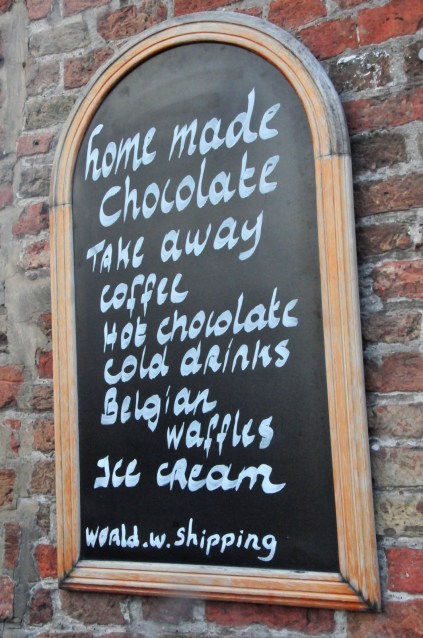 home made
Chocolate
Take away
coffee
Hot chocolate
cold drinks
Belgian
waffles
Ice cream
world.w.shipping